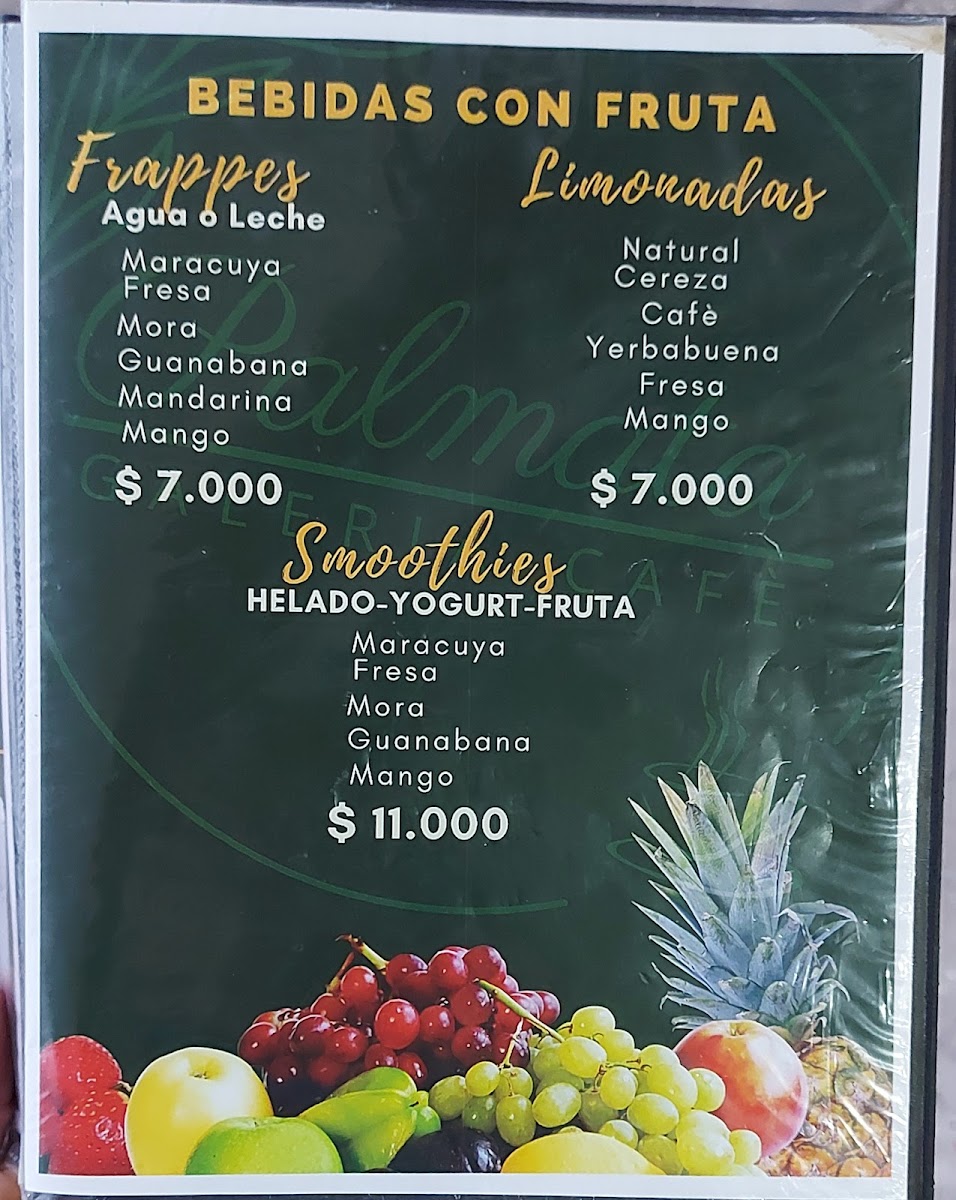 BEBIDAS CON FRUTA
Frappes
Agua o Leche
Maracuya
Fresa
Mora
Guanabana
Mandarina
Mango
$ 7.000
Limonadas
Natural
Cereza
Cafè
Yerbabuena
Fresa
Mango
$ 7.000
Smoothies
HELADO-YOGURT-FRUTA
Maracuya
Fresa
Mora
Guanabana
Mango
$ 11.000